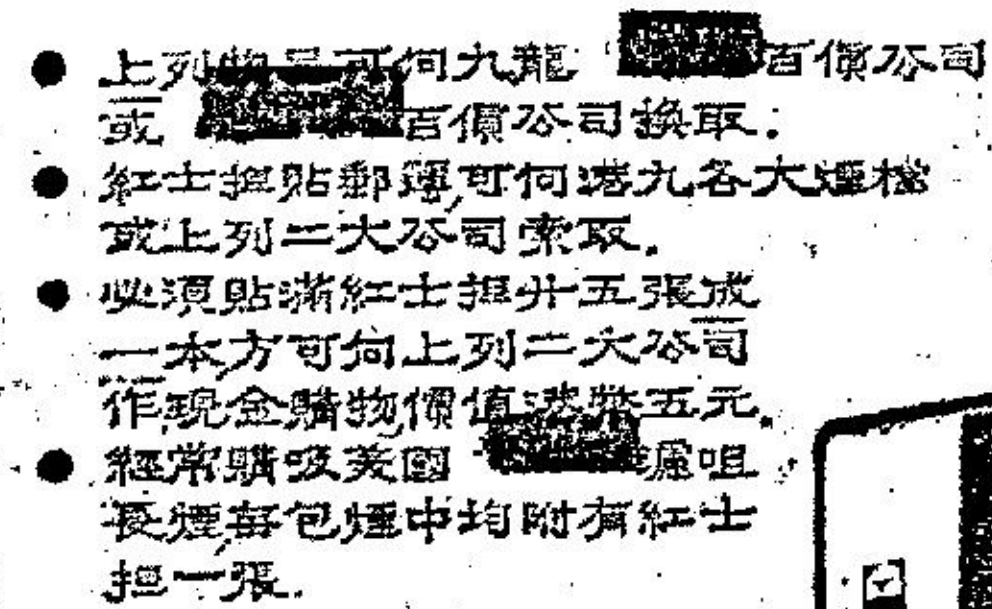 ● 上列物品可向九龍 百價公司
或 百價公司換取.
● 紅士担貼郵簿可向港九各大煙檔
或上列二大公司索取.
● 必須貼滿紅士担廿五張成
一本方可向上列二大公司
作現金購物價值港幣五元.
● 經常購吸英國 濾咀
長煙每包煙中均附有紅士
担一張.